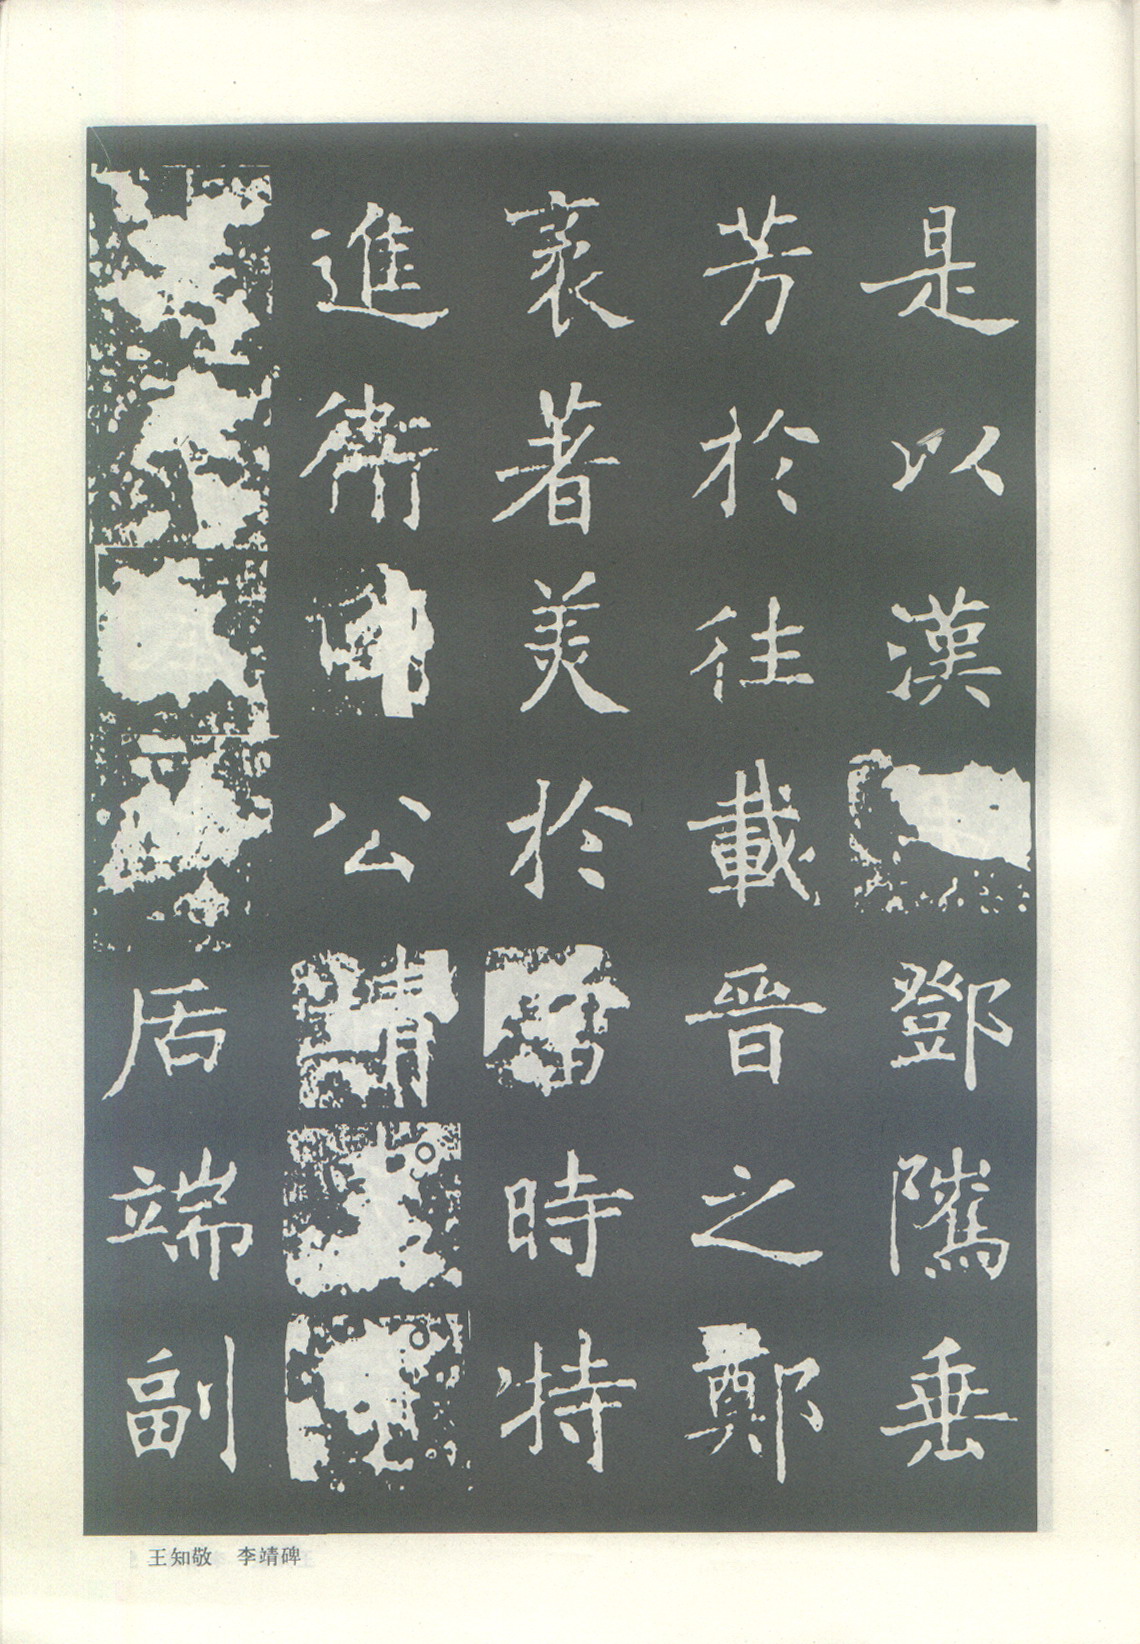 是以漢鄧隲垂
芳於往載晉之鄭
袤著美於當時特
進衛公靖
居端副
王知敬　李靖碑